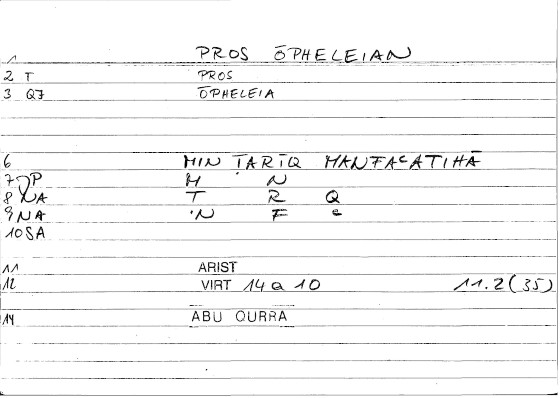 1 PROS ŌPHELEIAN
2 T PROS
3 Q7 ŌPHELEIA
6 MIN ṬARĪQ MANFAꜤATIHĀ
7 P M N
8 NA T R Q
9 NA N F Ꜥ
10 SA
11 ARIST
12 VIRT 14 a 10 11.2 (35)
14 ABU QURRA